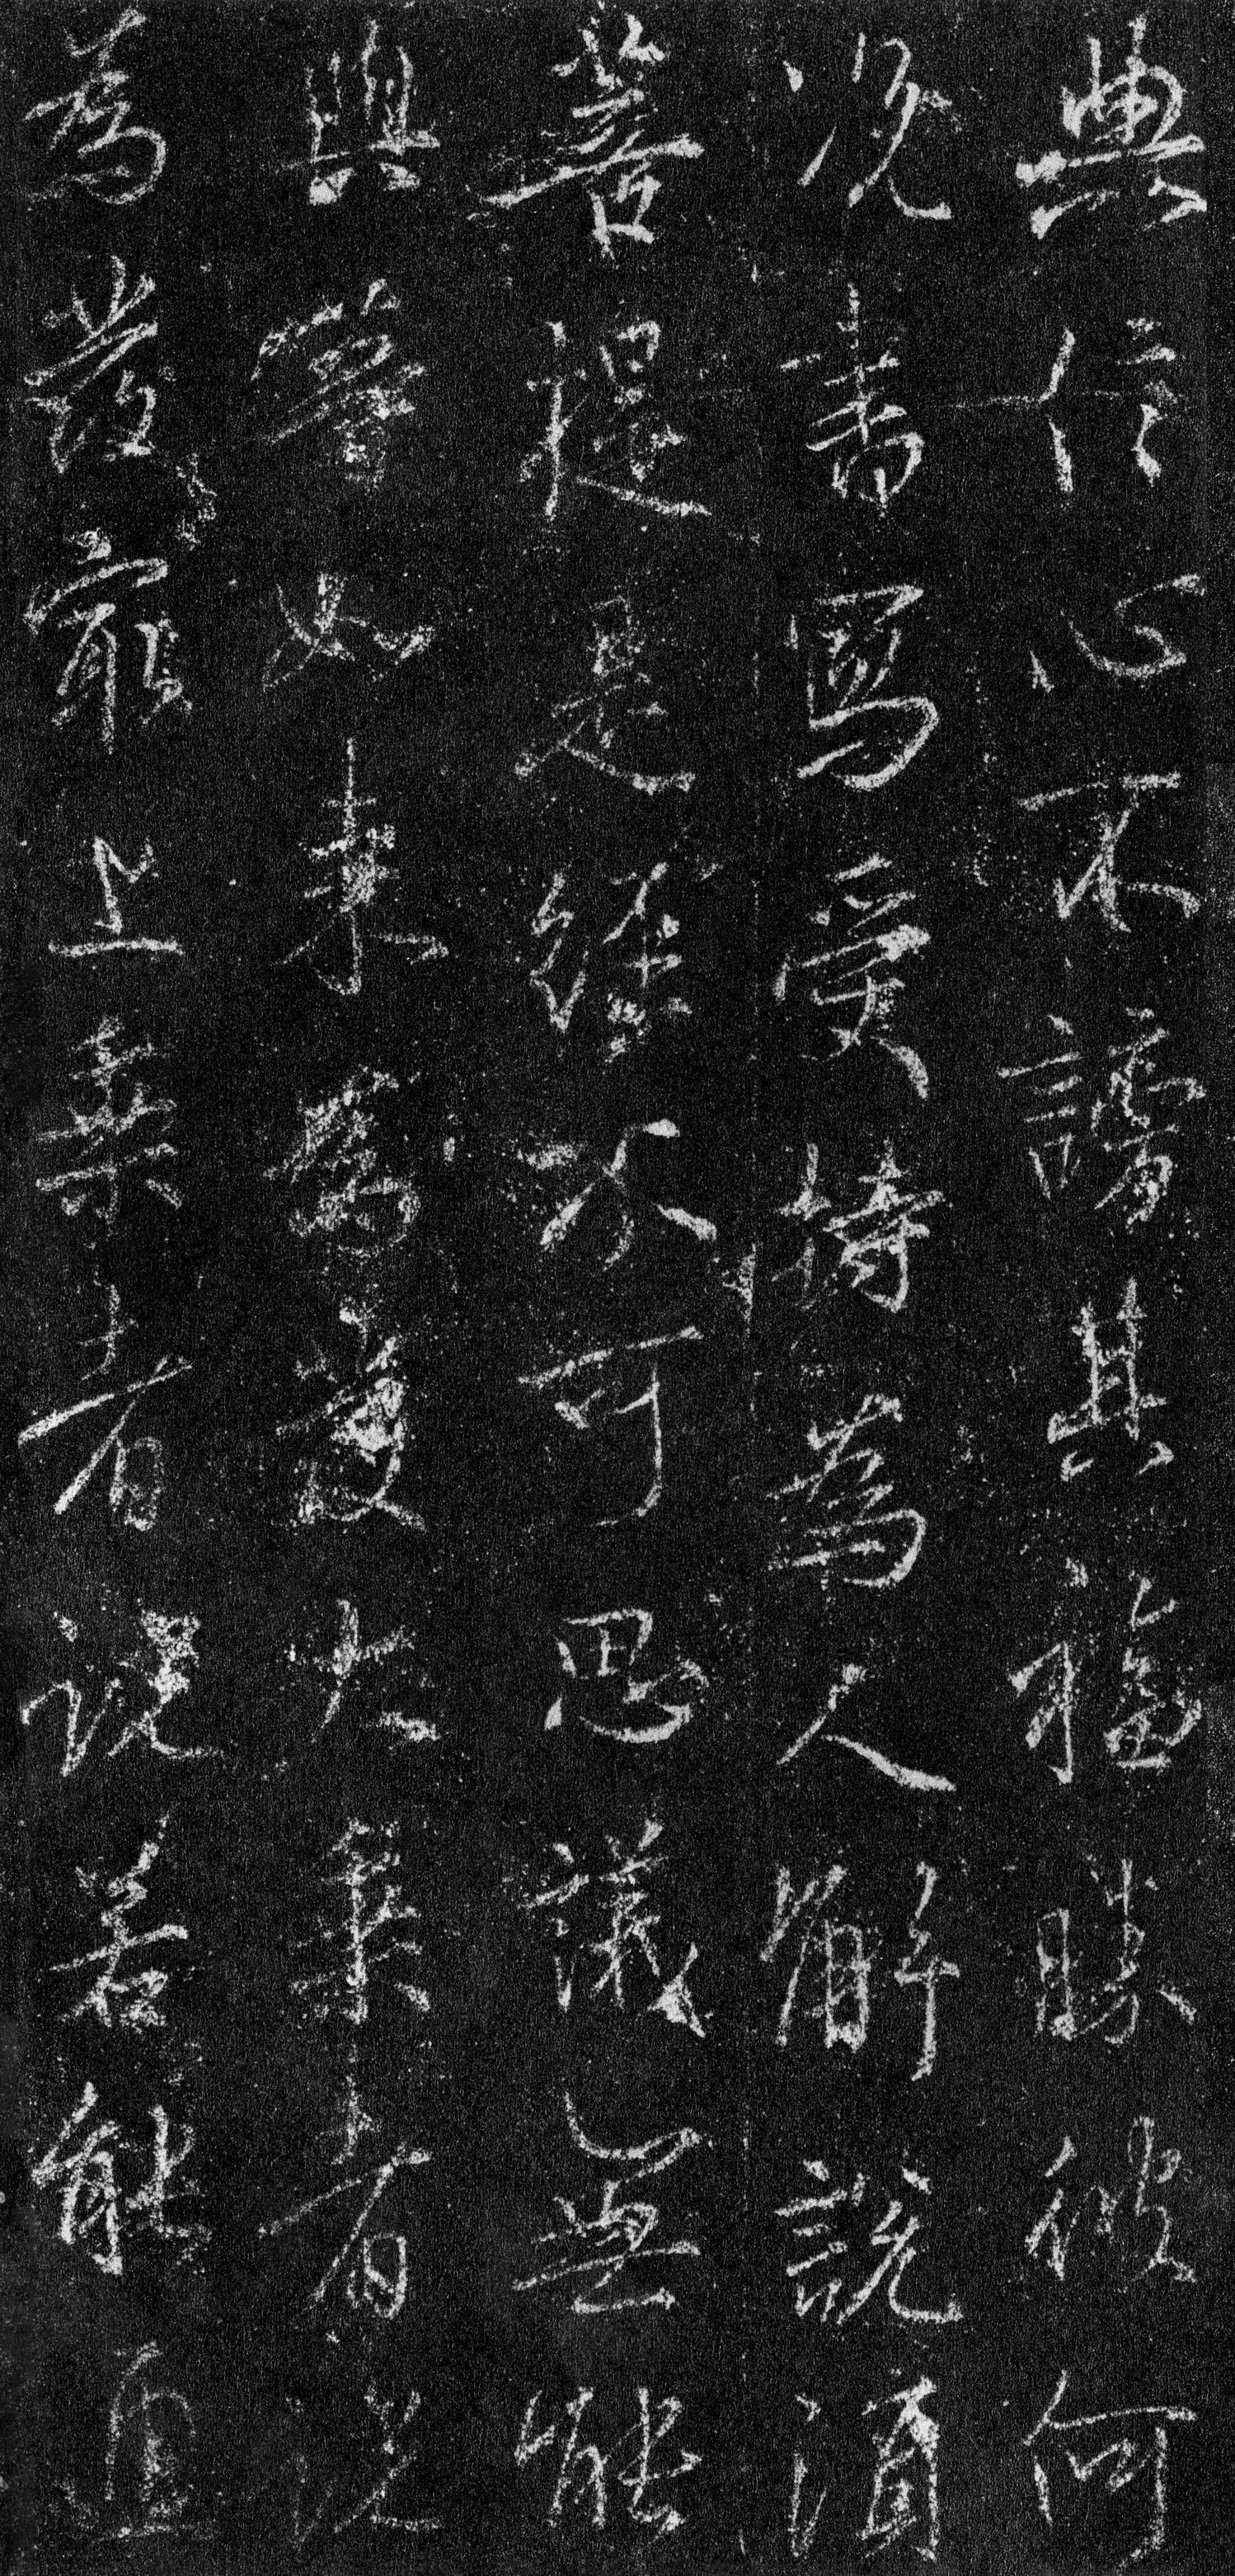 典信心不謗其福勝彼何
况書寫受持為人解說須
菩提是經不可思議無能
與如来為發大乘者說
為發最上乘者說若能